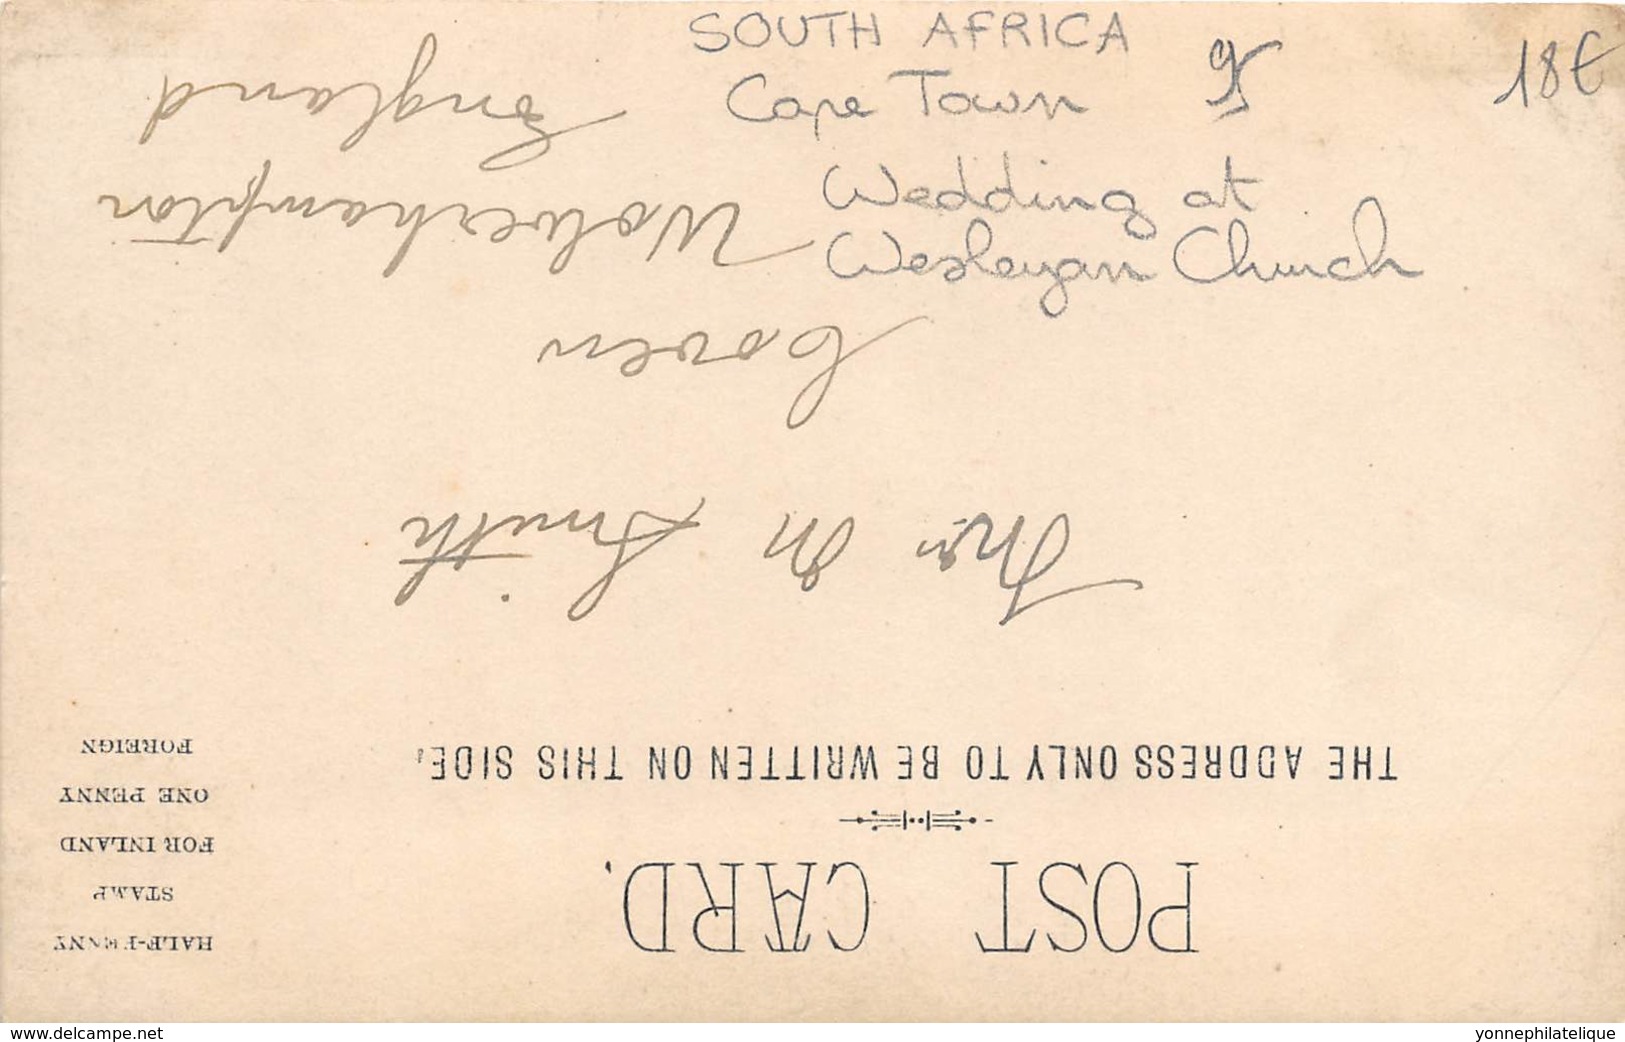 SOUTH AFRICA
Cape Town
95
18€
Wedding at
Wesleyan Church
POST CARD.
THE ADDRESS ONLY TO BE WRITTEN ON THIS SIDE.
HALF-PENNY
STAMP
FOR INLAND
ONE PENNY
FOREIGN
Mr M Smith
Coven
Wolverhampton
England
www.delcampe.net
yonnephilatelique